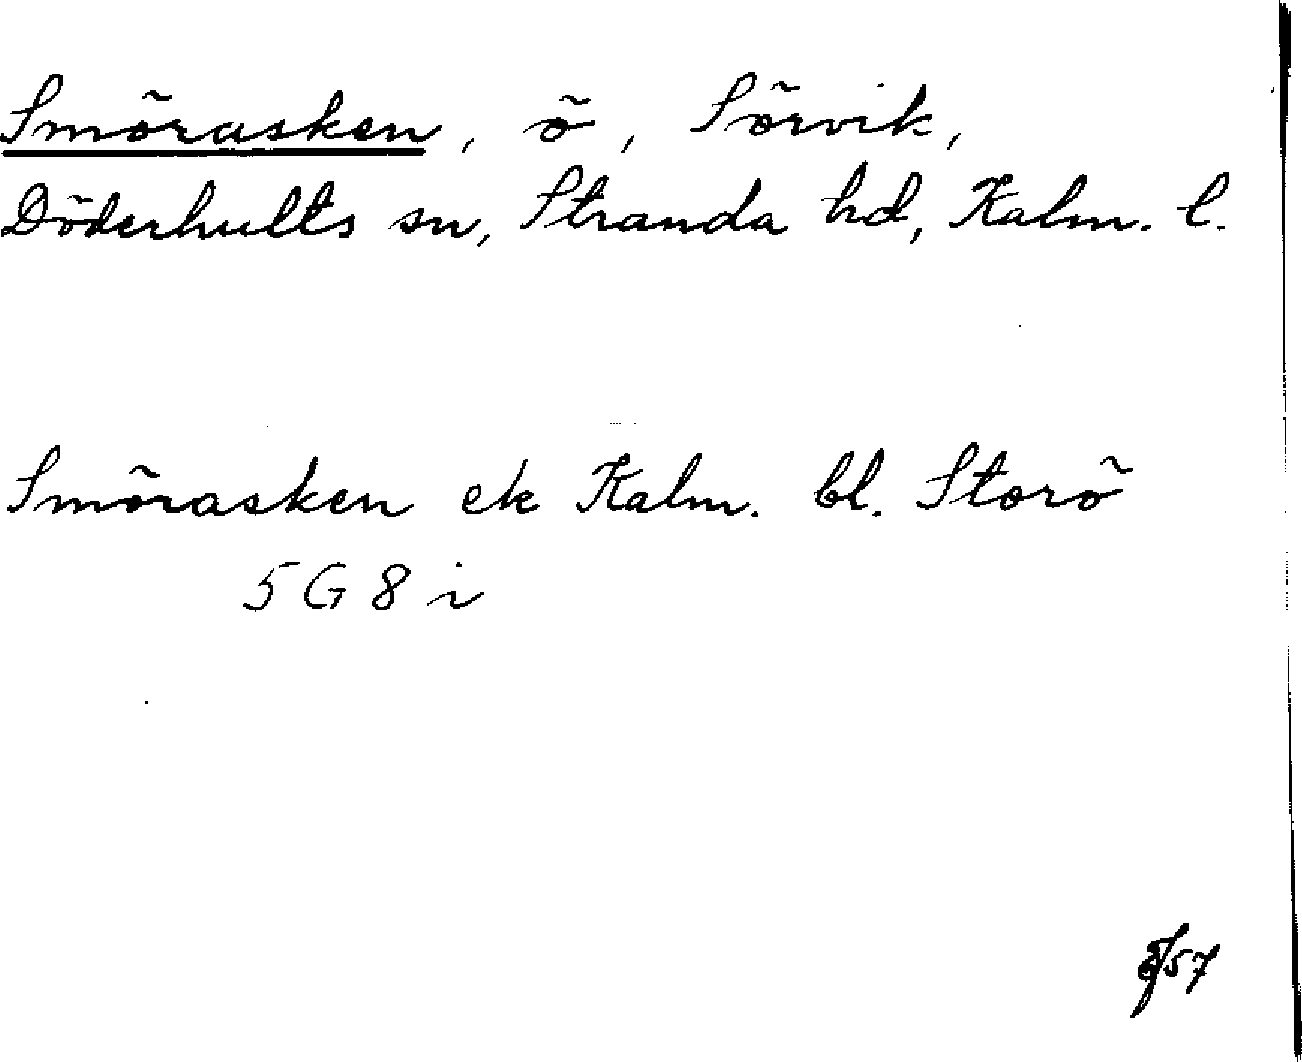 Smörasken, ö, Sörvik,
Döderhults sn, Stranda hd, Kalm. l.
Smörasken ek Kalm. bl. Storö
5 G 8 i